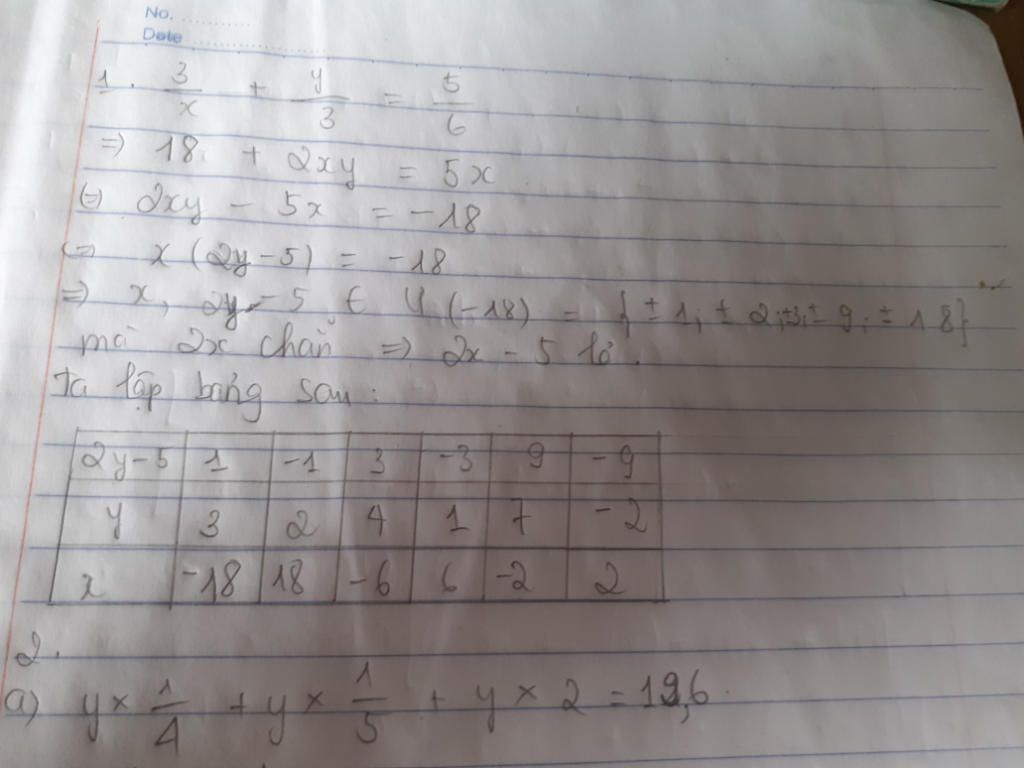 No. ............
Date ......................
1. 3/x + y/3 = 5/6
=> 18 + 2xy = 5x
(=) 2xy - 5x = -18
(=) x (2y-5) = -18
=> x, 2y-5 € Ư (-18) = {±1; ±2; ±3; ±9; ±18}
mà 2x chẵn => 2x - 5 lẻ.
Ta lập bảng sau:
2y-5 1 -1 3 -3 9 -9
y 3 2 4 1 7 -2
x -18 18 -6 6 -2 2
2.
a) y × 1/4 + y × 1/5 + y × 2 = 19,6.